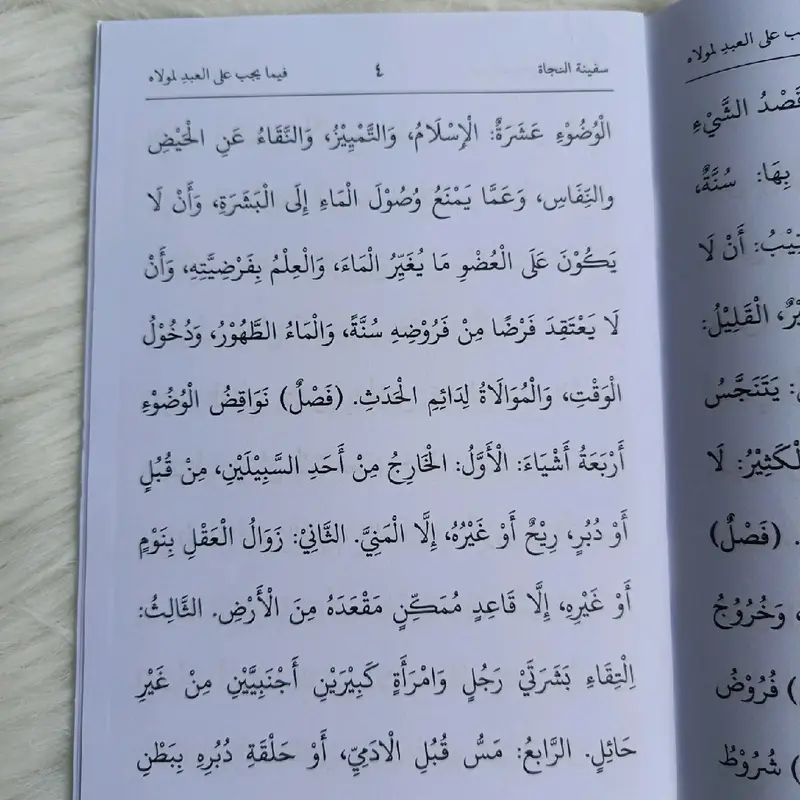 سفينة النجاة ٤ فيما يجب على العبدِ لمولاه
الْوُضُوْءِ عَشَرَةٌ: الْإِسْلَامُ، وَالتَّمْيِيْزُ، وَالنَّقَاءُ عَنِ الْحَيْضِ
والنِّفَاسِ، وَعَمَّا يَمْنَعُ وُصُوْلَ الْمَاءِ إِلَى الْبَشَرَةِ، وَأَنْ لَا
يَكُوْنَ عَلَى الْعُضْوِ مَا يُغَيِّرُ الْمَاءَ، وَالْعِلْمُ بِفَرْضِيَّتِهِ، وَأَنْ
لَا يَعْتَقِدَ فَرْضًا مِنْ فَرُوْضِهِ سُنَّةً، وَالْمَاءُ الطَّهُوْرُ، وَدُخُوْلُ
الْوَقْتِ، وَالْمُوَالَاةُ لِدَائِمِ الْحَدَثِ. (فَصْلٌ) نَوَاقِضُ الْوُضُوْءِ
أَرْبَعَةُ أَشْيَاءَ: الْأَوَّلُ: الْخَارِجُ مِنْ أَحَدِ السَّبِيْلَيْنِ، مِنْ قُبُلٍ
أَوْ دُبُرٍ، رِيْحٌ أَوْ غَيْرُهُ، إِلَّا الْمَنِيَّ. الثَّانِيْ: زَوَالُ الْعَقْلِ بِنَوْمٍ
أَوْ غَيْرِهِ، إِلَّا قَاعِدٍ مُمَكِّنٍ مَقْعَدَهُ مِنَ الْأَرْضِ. الثَّالِثُ:
اِلْتِقَاءِ بَشَرَتَيْ رَجُلٍ وَامْرَأَةٍ كَبِيْرَيْنِ أَجْنَبِيَّيْنِ مِنْ غَيْرِ
حَائِلٍ. الرَّابِعُ: مَسُّ قُبُلِ الْادَمِيِّ، أَوْ حَلْقَةِ دُبُرِهِ بِبَطْنِ
على العبدِ لمولاه
قَصْدُ الشَّيْءِ
بِهَا: سُنَّةٌ،
أَنْ لَا
الْقَلِيْلُ:
يَتَنَجَّسُ
لَا
(فَصْلٌ)
وَخُرُوْجُ
) فُرُوْضُ
) شُرُوْطُ